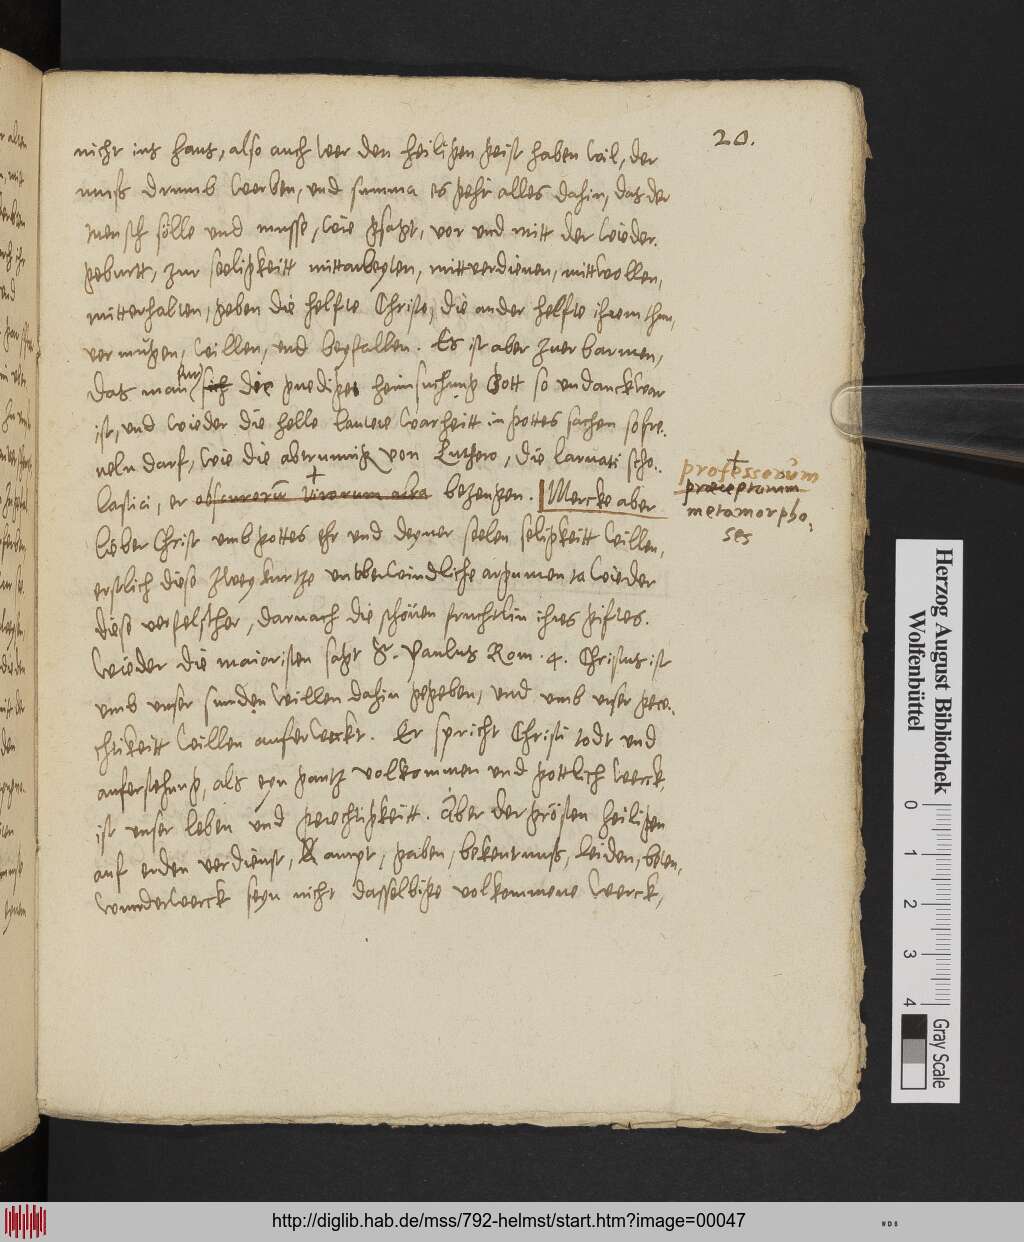 20.
nicht ins haus, also auch wer den heiligen geist haben wil, der
muß drumb werben, und summa es geht alles dahin, das der
mensch sölle und musse, wie gsagt, vor und mitt der wieder.
geburtt, zur seeligkeitt mittarbeyten, mittverdienen, mittwollen,
mitterhalten, geben die helfte Christo, die ander helfte ihrem thun,
vermügen, willen, und beyfallen. Es ist aber zuerbarmen,
das man sich der gnedigen heimsuchung Gott so undanckbar
ist, und wieder die helle lautere warheitt in gottes sachen so fre.
veln darf, wie die abtrunnig von Luthero, die larvati scho..
lastici, er obscurorum virorum acta bezeugen. Mercke aber
professorum
præceptorum
metamorpho.
ses
lieber Christ umb gottes ehr und deyner seelen seligkeitt willen,
erstlich diese zwey kurtze unuberwindliche argumenta wieder
diese verfelscher, darnach die schönen fruchtlin ihres giftes.
Wieder die maioristen sagt S. Paulus Rom. 4. Christus ist
umb unser sunden willen dahin gegeben, und umb unser gere..
chtikeitt willen auferweckt. Er spricht Christi todt und
auferstehung, als eyn gantz volkommen und gottlich werck,
ist unser leben und gerechtigkeitt. Aber der grösten heiligen
auf erden verdienst, ampt, gaben, bekentnuß, leiden, beten,
wunderwerck seyn nicht dasselbige volkommene werck,
Herzog August Bibliothek
Wolfenbüttel
0 1 2 3 4
Gray Scale
http://diglib.hab.de/mss/792-helmst/start.htm?image=00047